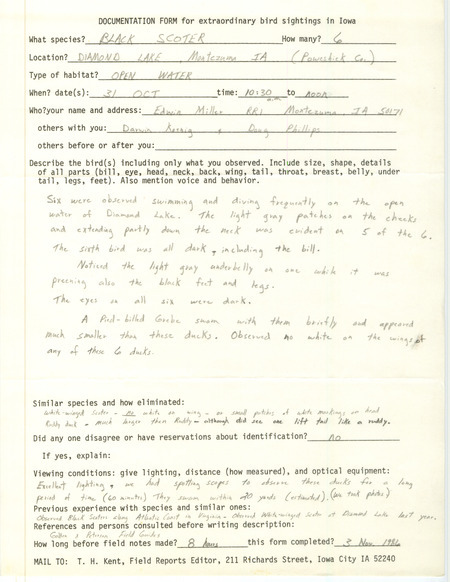 DOCUMENTATION FORM for extraordinary bird sightings in Iowa
What species? BLACK SCOTER How many? 6
Location? DIAMOND LAKE Montezuma IA (Poweshiek Co.)
Type of habitat? OPEN WATER
When? date(s): 31 OCT time: 10:30 to noon
Who?your name and address: Edwin Miller RR1 Montezuma, IA 50171
others with you: Darwin Koenig, Doug Phillips
others before or after you:
Describe the bird(s) including only what you observed. Include size, shape, details
of all parts (bill, eye, head, neck, back, wing, tail, throat, breast, belly, under
tail, legs, feet). Also mention voice and behavior.
Six were observed swimming and diving frequently on the open
water of Diamond Lake. The light gray patches on the cheeks
and extending partly down the neck was evident on 5 of the 6.
The sixth bird was all dark, including the bill.
Noticed the light gray underbelly on one while it was
preening also the black feet and legs.
The eyes on all six were dark.
A Pied-billed Grebe swam with them briefly and appeared
much smaller than these ducks. Observed no white on the wings of
any of these 6 ducks.
Similar species and how eliminated:
White-winged Scoter - no white on wing - no small patches of white markings on head
Ruddy duck - much larger than Ruddy - although did see one lift tail like a ruddy.
Did any one disagree or have reservations about identification? no
If yes, explain:
Viewing conditions: give lighting, distance (how measured), and optical equipment:
Excellent lighting, we had spotting scopes to observe these ducks for a long
period of time (60 minutes) They swam within 70 yards (estimated). (We took photos)
Previous experience with species and similar ones:
Observed Black Scoters along Atlantic Coast in Virginia - Observed White-winged Scoter at Diamond Lake last year.
References and persons consulted before writing description:
Golden & Peterson Field Guides
How long before field notes made? 8 hours this form completed? 3 Nov. 1986
MAIL TO: T. H. Kent, Field Reports Editor, 211 Richards Street, Iowa City IA 52240